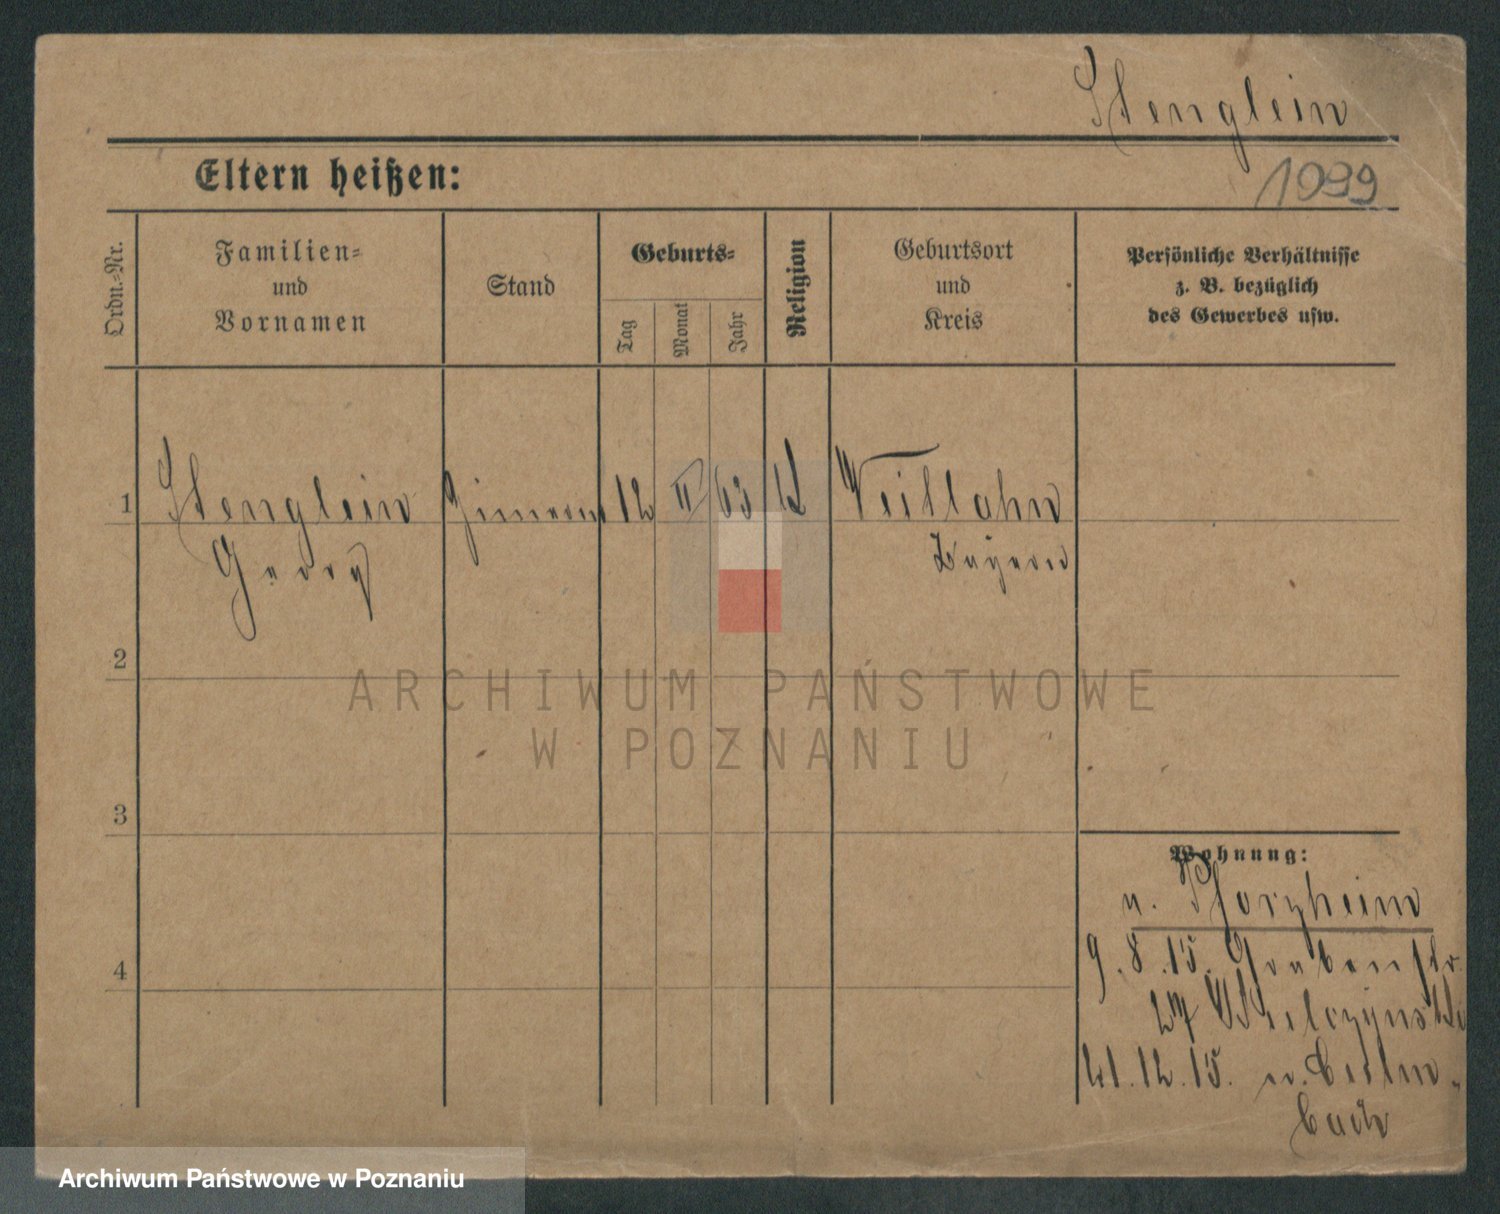 Stenglein
Eltern heißen:
1099
Ordn.-Nr.
Familien-
und
Vornamen
Stand
Geburts-
Tag
Monat
Jahr
Religion
Geburtsort
und
Kreis
Persönliche Verhältnisse
z. B. bezüglich
des Gewerbes usw.
1 Stenglein 12 II 63 Veitlahm
Georg Bayern
2
3
4
Wohnung:
n. Pforzheim
9.8.15. Grabenstr.
27
21.12.15. n.
bach
ARCHIWUM PAŃSTWOWE
W POZNANIU
Archiwum Państwowe w Poznaniu